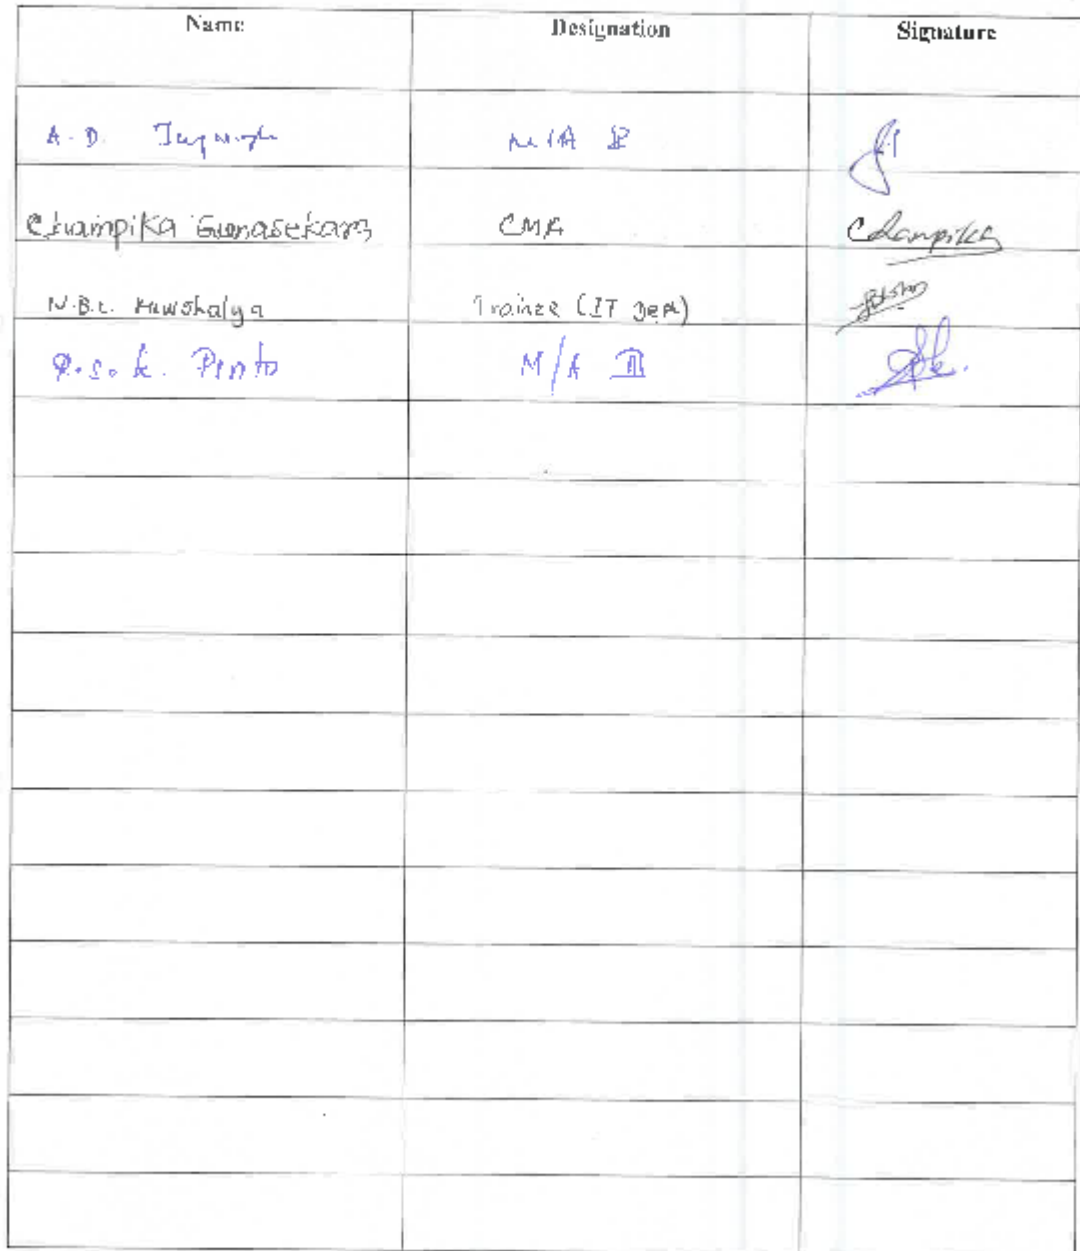 Name Designation Signature
A. D.
Champika Gunasekara CMA Champika
N.B.L. Kawshalya Trainee (IT Dep)
P.S.K. Pinto M/A III